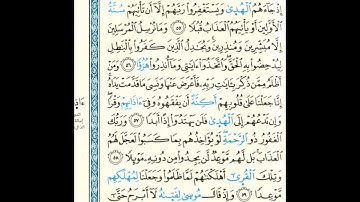 إِذْ جَآءَهُمُ ٱلْهُدَىٰ وَيَسْتَغْفِرُوا۟ رَبَّهُمْ إِلَّآ أَن تَأْتِيَهُمْ سُنَّةُ
ٱلْأَوَّلِينَ أَوْ يَأْتِيَهُمُ ٱلْعَذَابُ قُبُلًا ٥٥ وَمَا نُرْسِلُ ٱلْمُرْسَلِينَ
إِلَّا مُبَشِّرِينَ وَمُنذِرِينَ وَيُجَـٰدِلُ ٱلَّذِينَ كَفَرُوا۟ بِٱلْبَـٰطِلِ
لِيُدْحِضُوا۟ بِهِ ٱلْحَقَّ وَٱتَّخَذُوٓا۟ ءَايَـٰتِى وَمَآ أُنذِرُوا۟ هُزُوًا ٥٦ وَمَنْ
أَظْلَمُ مِمَّن ذُكِّرَ بِـَٔايَـٰتِ رَبِّهِۦ فَأَعْرَضَ عَنْهَا وَنَسِىَ مَا قَدَّمَتْ يَدَاهُ
إِنَّا جَعَلْنَا عَلَىٰ قُلُوبِهِمْ أَكِنَّةً أَن يَفْقَهُوهُ وَفِىٓ ءَاذَانِهِمْ وَقْرًا
وَإِن تَدْعُهُمْ إِلَى ٱلْهُدَىٰ فَلَن يَهْتَدُوٓا۟ إِذًا أَبَدًا ٥٧ وَرَبُّكَ
ٱلْغَفُورُ ذُو ٱلرَّحْمَةِ لَوْ يُؤَاخِذُهُم بِمَا كَسَبُوا۟ لَعَجَّلَ لَهُمُ
ٱلْعَذَابَ بَل لَّهُم مَّوْعِدٌ لَّن يَجِدُوا۟ مِن دُونِهِۦ مَوْئِلًا ٥٨
وَتِلْكَ ٱلْقُرَىٰٓ أَهْلَكْنَـٰهُمْ لَمَّا ظَلَمُوا۟ وَجَعَلْنَا لِمَهْلِكِهِم
مَّوْعِدًا ٥٩ وَإِذْ قَالَ مُوسَىٰ لِفَتَىٰهُ لَآ أَبْرَحُ حَتَّىٰٓ